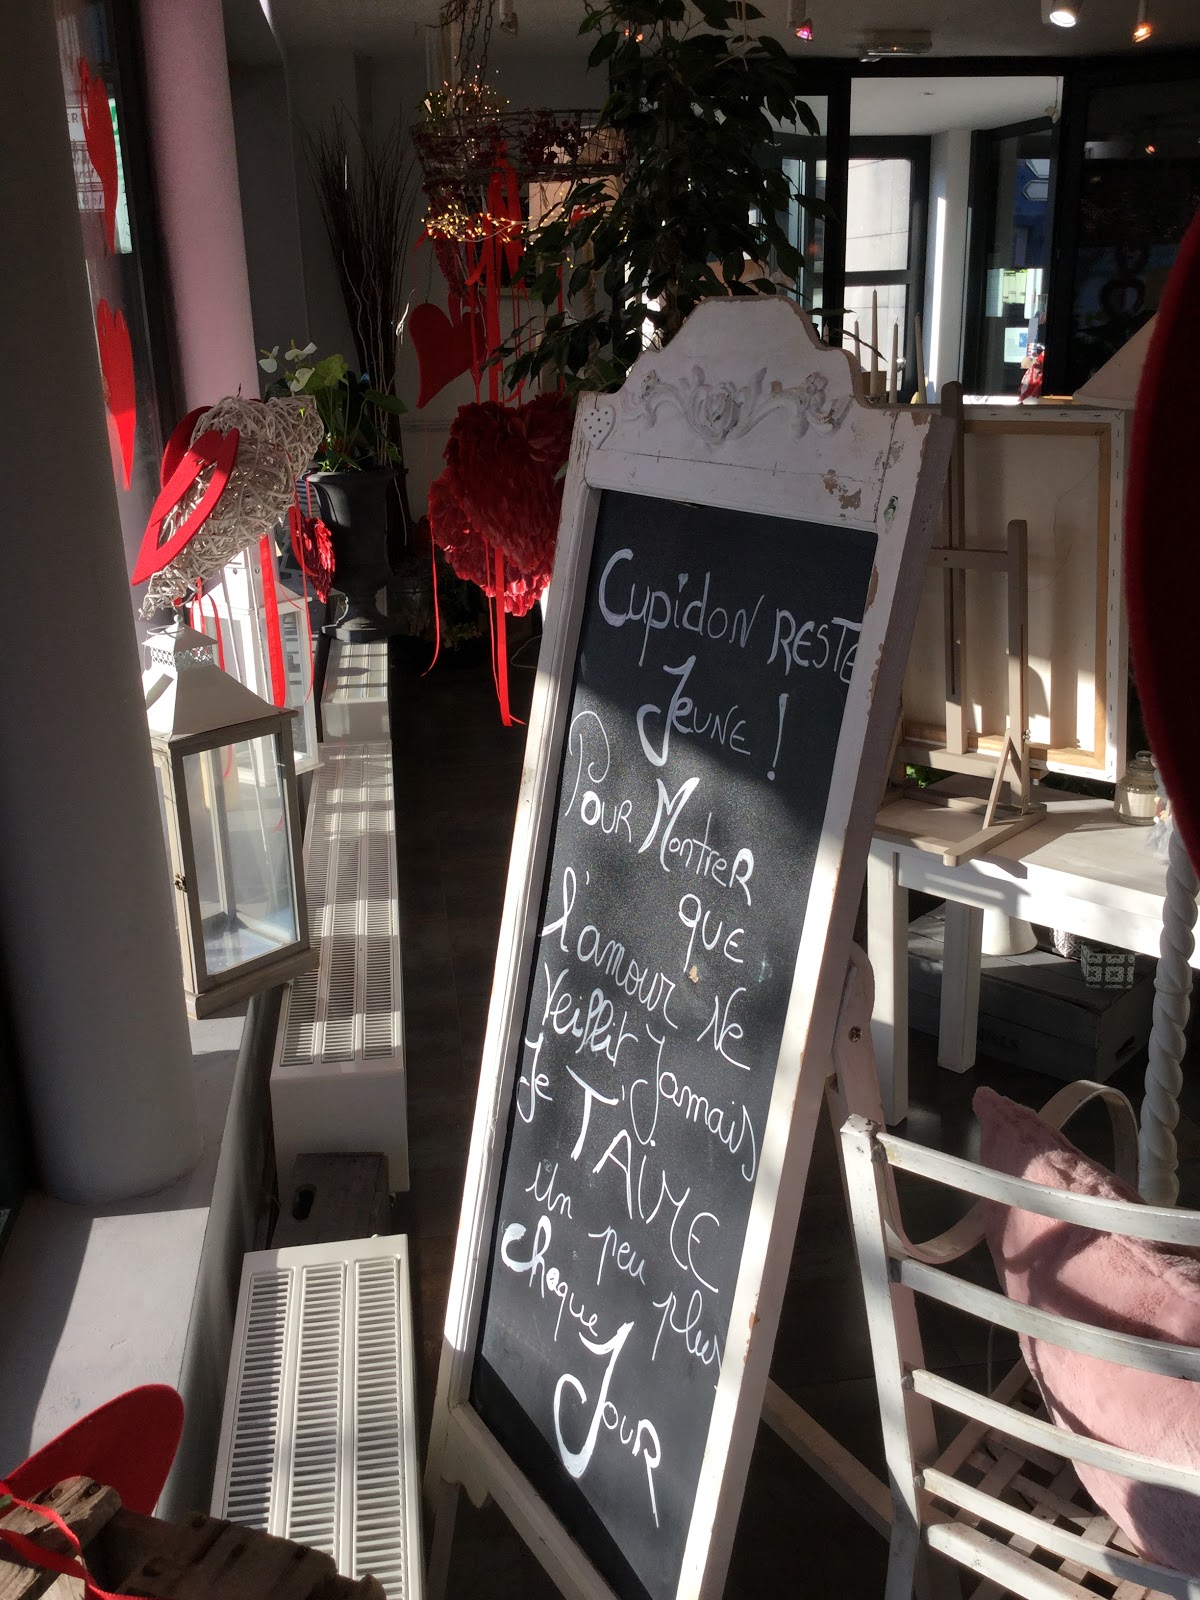 Cupidon RESTE
Jeune !
Pour Montrer
que
l'amour Ne
Veillit Jamais
Je T'AIME
un peu plus
chaque
Jour